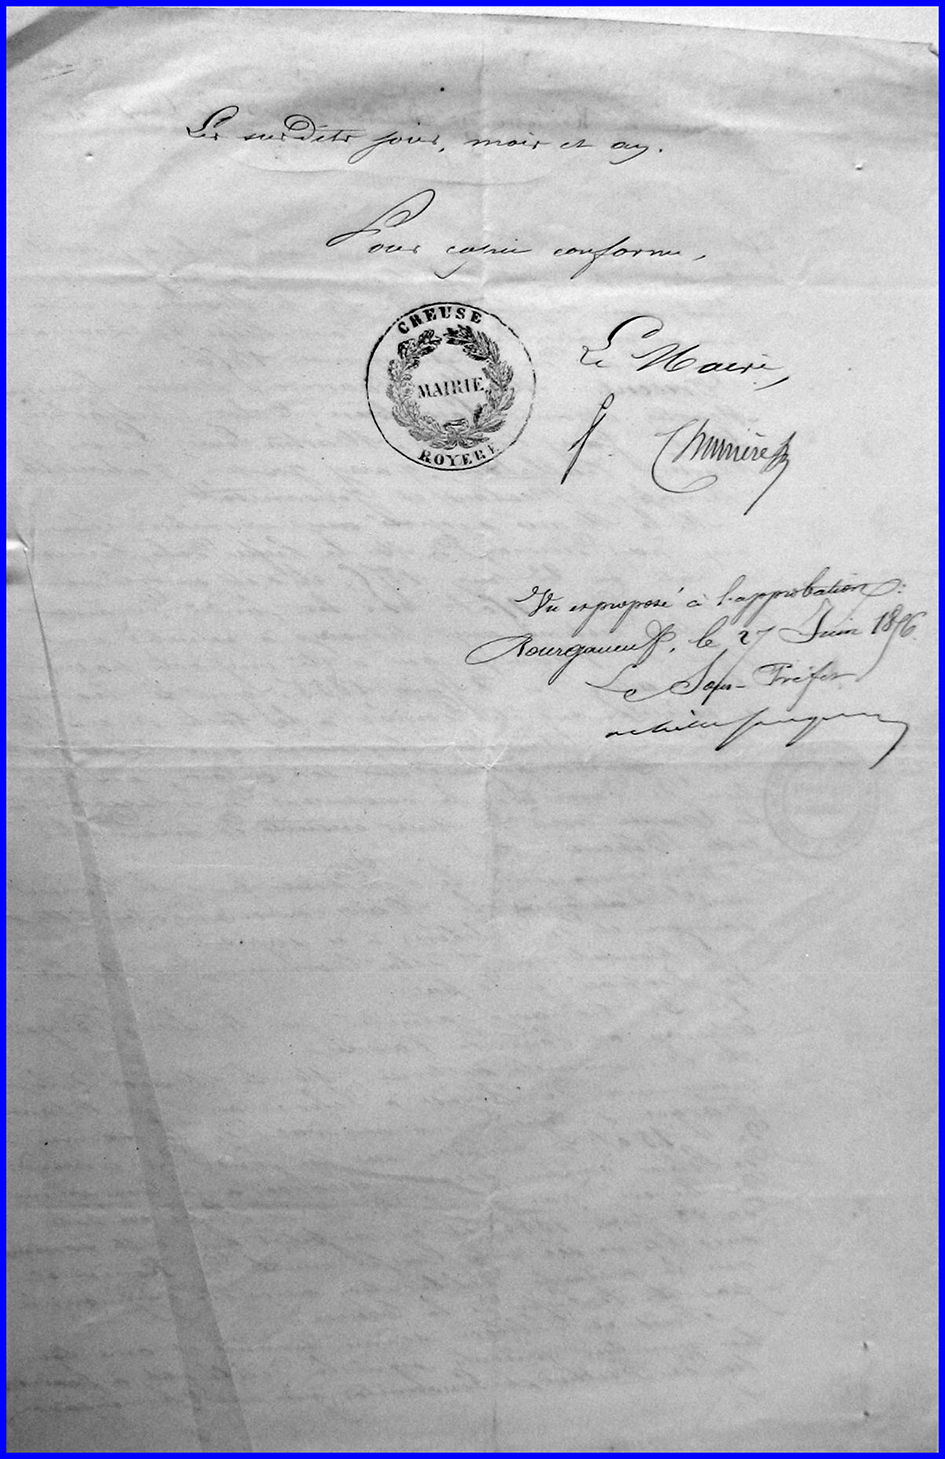 Les susdits jour, mois et an.
Pour copie conforme,
CREUSE
MAIRIE
ROYERE
Le Maire,
Vu et proposé à l'approbation:
Bourganeuf, le 27 Juin 1896.
Le Sous-Préfet